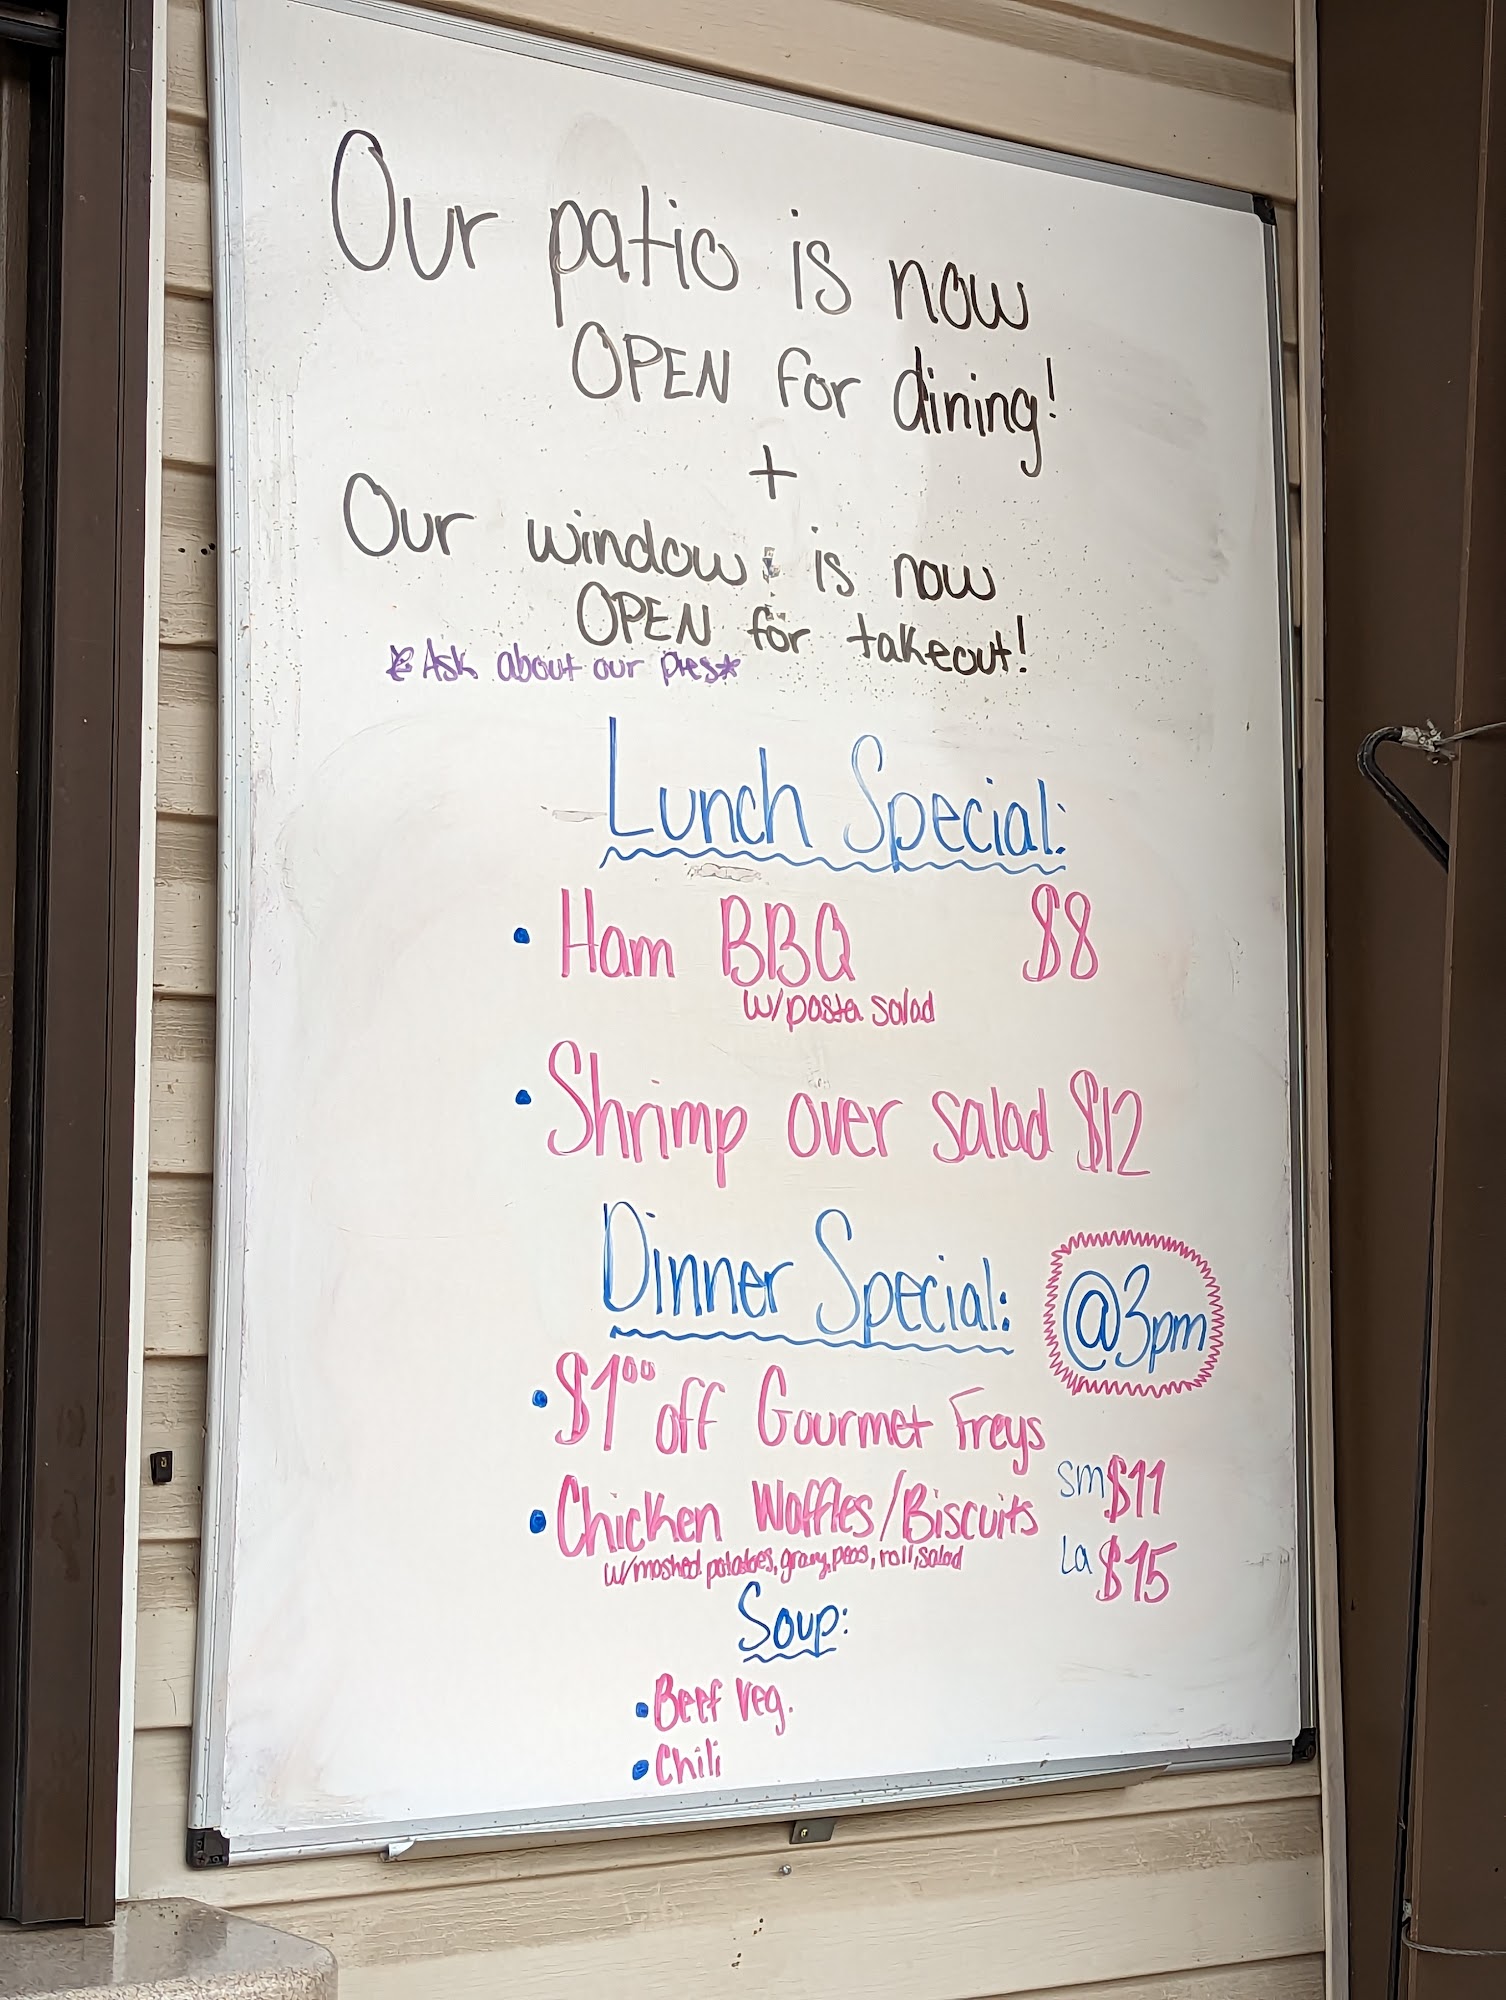 Our patio is now
OPEN for dining!
+
Our window is now
OPEN for takeout!
*Ask about our pies*
Lunch Special:
• Ham BBQ $8
w/pasta salad
• Shrimp over salad $12
Dinner Special: @3pm
• $1⁰⁰ off Gourmet Freys
• Chicken Waffles/Biscuits sm $11
w/mashed potatoes, gravy, peas, roll, salad La $15
Soup:
• Beef Veg.
• Chili